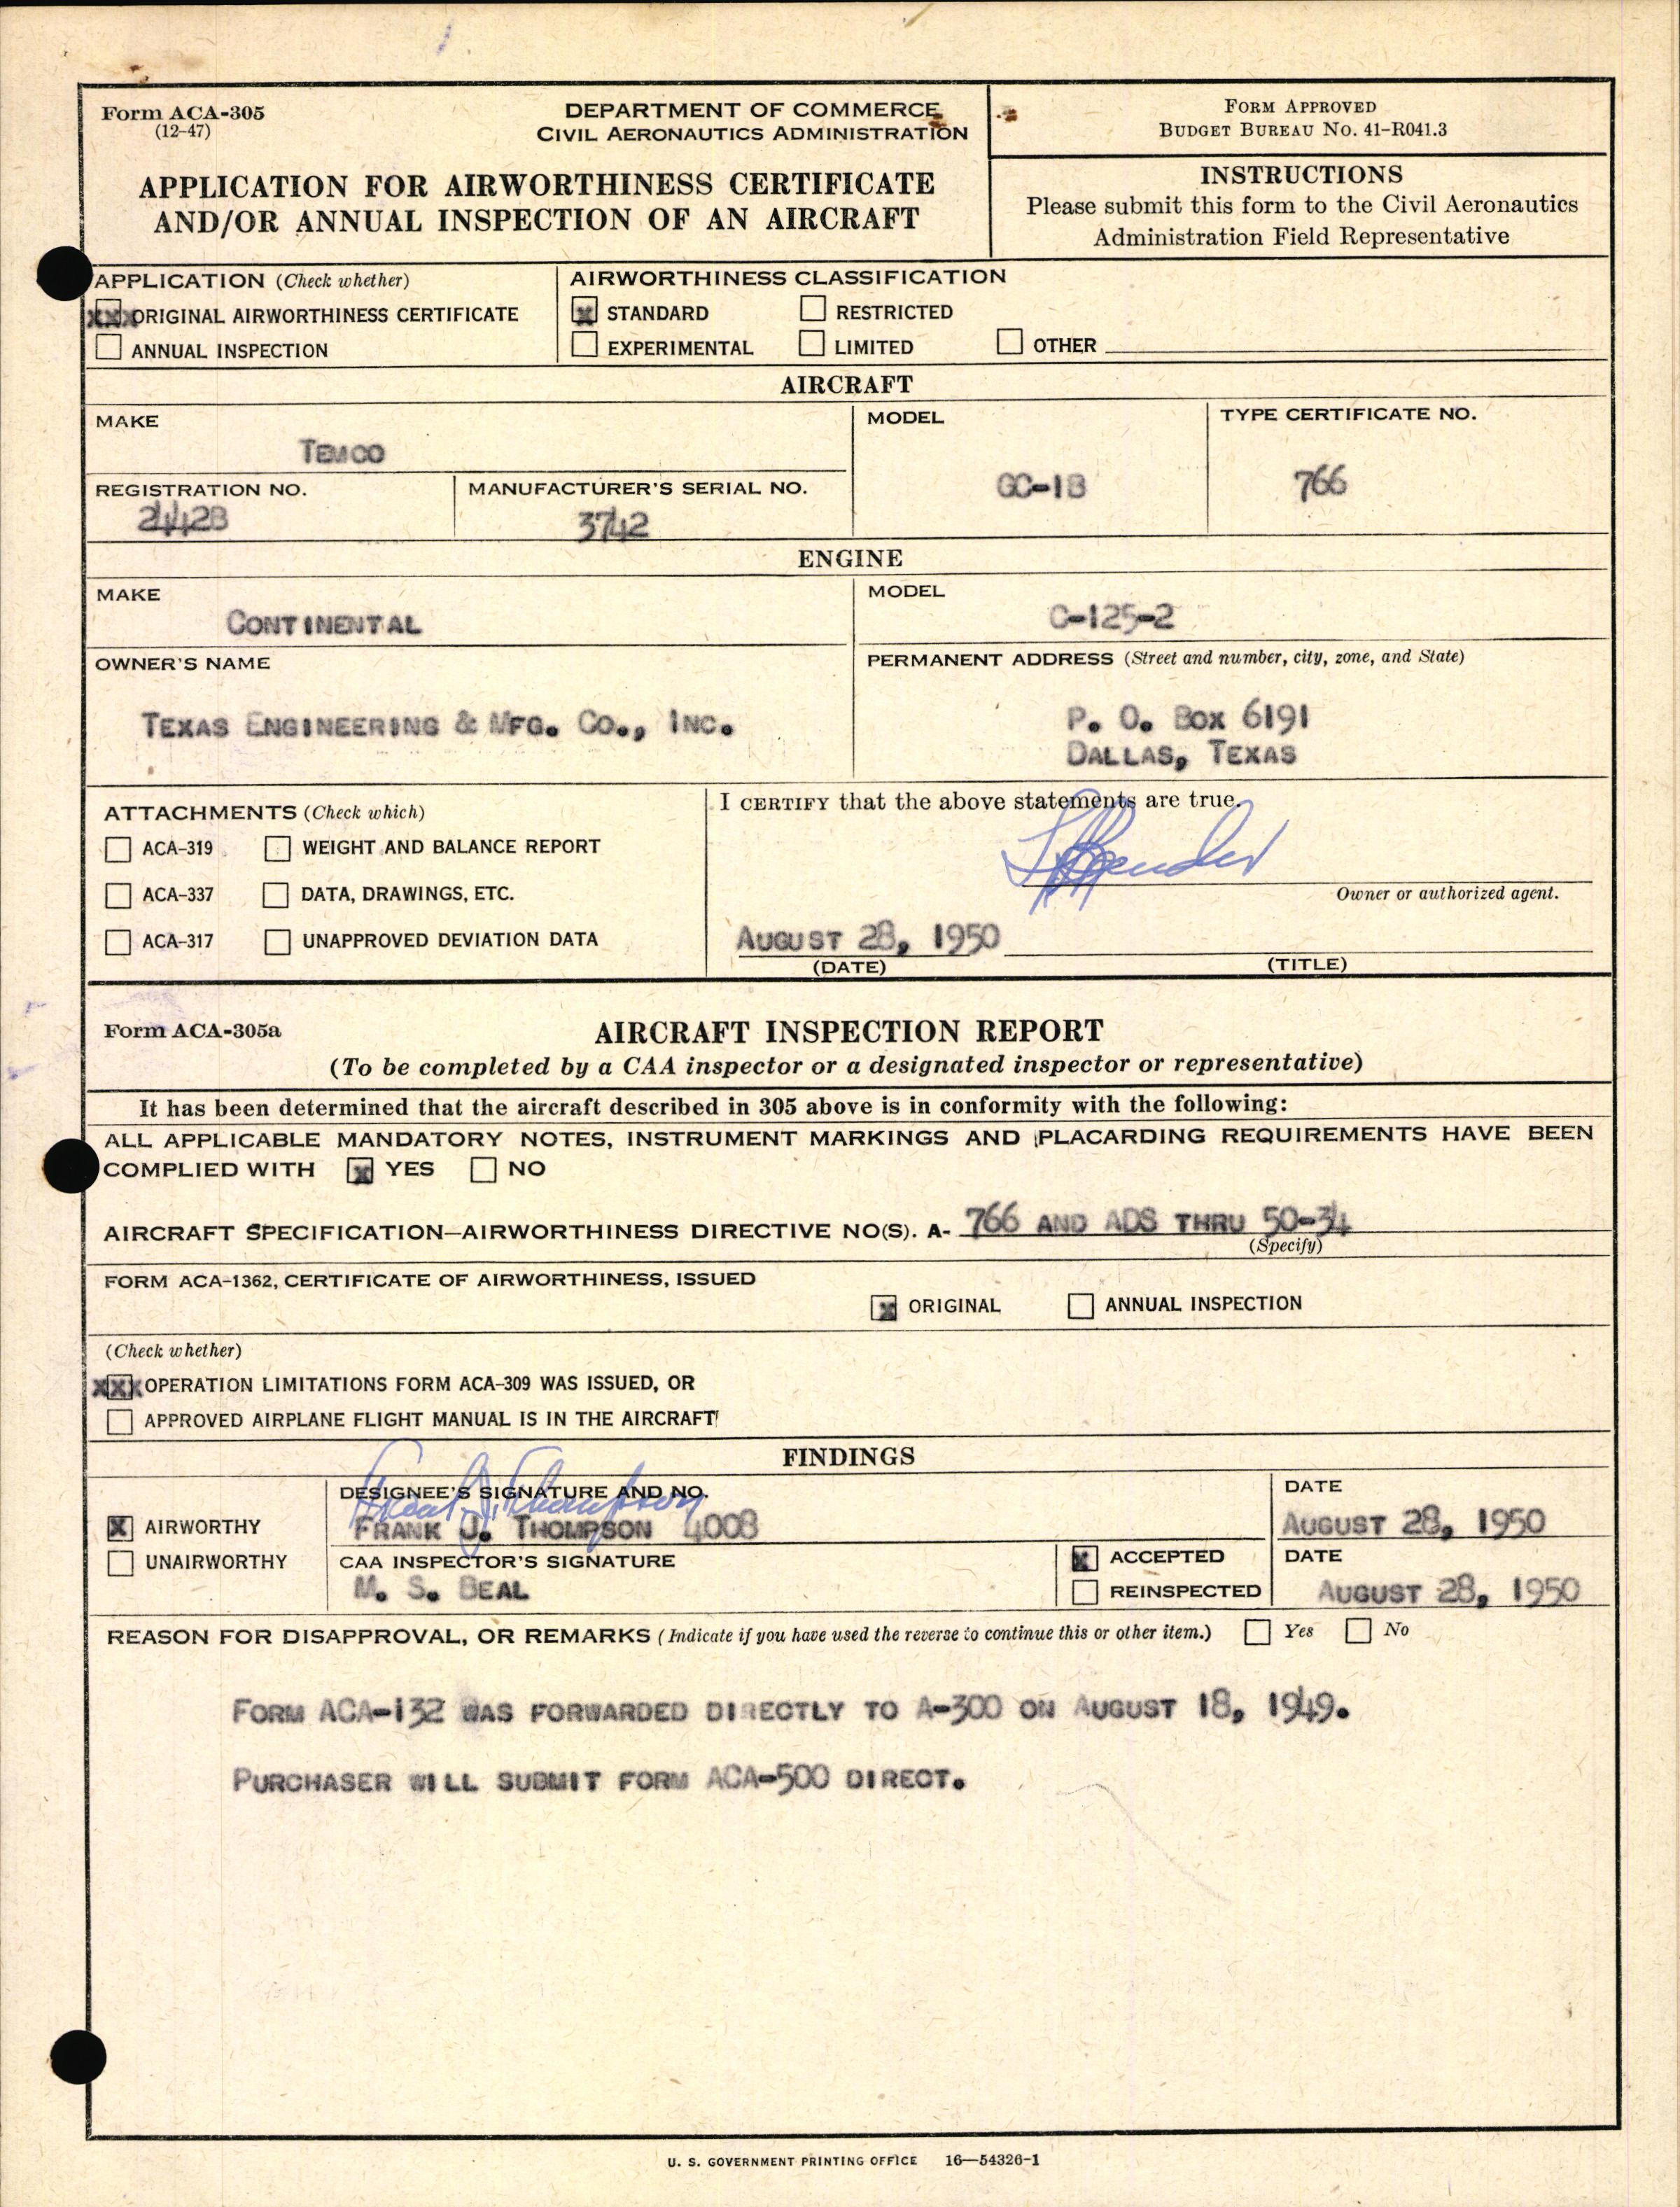 Form ACA-305
(12-47)
DEPARTMENT OF COMMERCE
CIVIL AERONAUTICS ADMINISTRATION
APPLICATION FOR AIRWORTHINESS CERTIFICATE
AND/OR ANNUAL INSPECTION OF AN AIRCRAFT
FORM APPROVED
BUDGET BUREAU NO. 41-R041.3
INSTRUCTIONS
Please submit this form to the Civil Aeronautics
Administration Field Representative
APPLICATION (Check whether)
XXX ORIGINAL AIRWORTHINESS CERTIFICATE
ANNUAL INSPECTION
AIRWORTHINESS CLASSIFICATION
X STANDARD RESTRICTED
EXPERIMENTAL LIMITED OTHER
AIRCRAFT
MAKE
TEMCO
MODEL
GC-1B
TYPE CERTIFICATE NO.
766
REGISTRATION NO.
2442B
MANUFACTURER'S SERIAL NO.
3742
ENGINE
MAKE
CONTINENTAL
MODEL
C-125-2
OWNER'S NAME
TEXAS ENGINEERING & MFG. CO., INC.
PERMANENT ADDRESS (Street and number, city, zone, and State)
P. O. BOX 6191
DALLAS, TEXAS
ATTACHMENTS (Check which)
ACA-319 WEIGHT AND BALANCE REPORT
ACA-337 DATA, DRAWINGS, ETC.
ACA-317 UNAPPROVED DEVIATION DATA
I CERTIFY that the above statements are true.
Owner or authorized agent.
AUGUST 28, 1950
(DATE) (TITLE)
Form ACA-305a
AIRCRAFT INSPECTION REPORT
(To be completed by a CAA inspector or a designated inspector or representative)
It has been determined that the aircraft described in 305 above is in conformity with the following:
ALL APPLICABLE MANDATORY NOTES, INSTRUMENT MARKINGS AND PLACARDING REQUIREMENTS HAVE BEEN
COMPLIED WITH X YES NO
AIRCRAFT SPECIFICATION—AIRWORTHINESS DIRECTIVE NO(S). A- 766 AND ADS THRU 50-34
(Specify)
FORM ACA-1362, CERTIFICATE OF AIRWORTHINESS, ISSUED
X ORIGINAL ANNUAL INSPECTION
(Check whether)
XXX OPERATION LIMITATIONS FORM ACA-309 WAS ISSUED, OR
APPROVED AIRPLANE FLIGHT MANUAL IS IN THE AIRCRAFT
FINDINGS
X AIRWORTHY
UNAIRWORTHY
DESIGNEE'S SIGNATURE AND NO.
Frank J. Thompson
FRANK J. THOMPSON 4008
DATE
AUGUST 28, 1950
CAA INSPECTOR'S SIGNATURE
M. S. BEAL
X ACCEPTED
REINSPECTED
DATE
AUGUST 28, 1950
REASON FOR DISAPPROVAL, OR REMARKS (Indicate if you have used the reverse to continue this or other item.) Yes No
FORM ACA-132 WAS FORWARDED DIRECTLY TO A-300 ON AUGUST 18, 1949.
PURCHASER WILL SUBMIT FORM ACA-500 DIRECT.
U. S. GOVERNMENT PRINTING OFFICE 16—54326-1